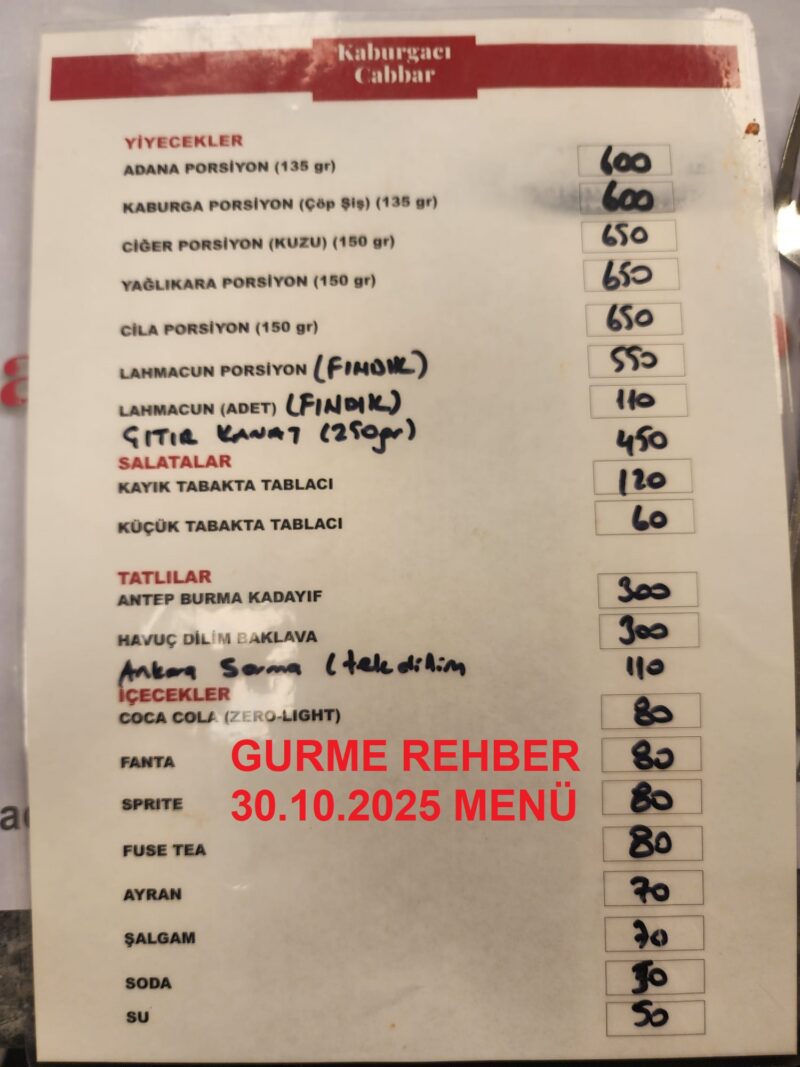 Kaburgacı
Cabbar
YİYECEKLER
ADANA PORSİYON (135 gr) 600
KABURGA PORSİYON (Çöp Şiş) (135 gr) 600
CİĞER PORSİYON (KUZU) (150 gr) 650
YAĞLIKARA PORSİYON (150 gr) 650
CİLA PORSİYON (150 gr) 650
LAHMACUN PORSİYON (FINDIK) 550
LAHMACUN (ADET) (FINDIK) 110
ÇITIR KANAT (250gr) 450
SALATALAR
KAYIK TABAKTA TABLACI 120
KÜÇÜK TABAKTA TABLACI 60
TATLILAR
ANTEP BURMA KADAYIF 300
HAVUÇ DİLİM BAKLAVA 300
Ankara Sarma (tek dilim 110
İÇECEKLER
COCA COLA (ZERO-LIGHT) 80
FANTA 80
GURME REHBER
30.10.2025 MENÜ
SPRITE 80
FUSE TEA 80
AYRAN 70
ŞALGAM 70
SODA
SU 50